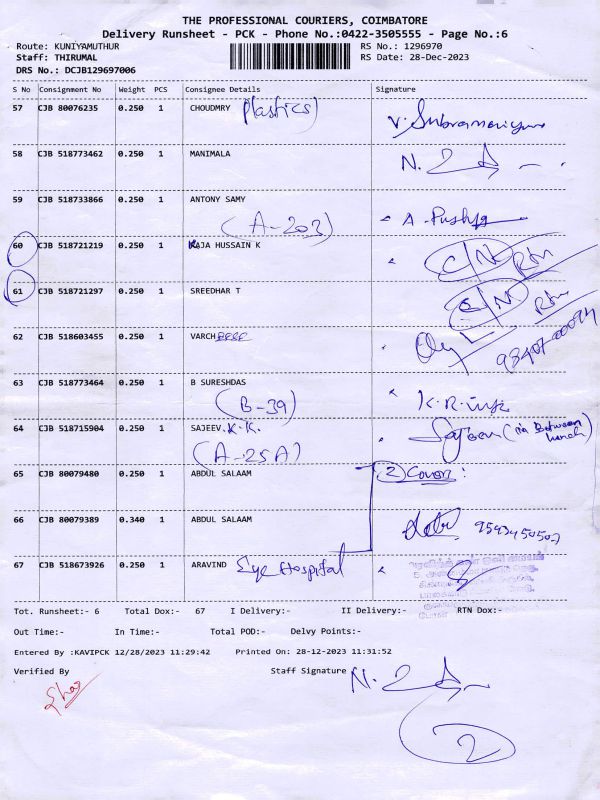 THE PROFESSIONAL COURIERS, COIMBATORE
Delivery Runsheet - PCK - Phone No.:0422-3505555 - Page No.:6
Route: KUNIYAMUTHUR RS No.: 1296970
Staff: THIRUMAL RS Date: 28-Dec-2023
DRS No.: DCJB129697006
S No Consignment No Weight PCS Consignee Details Signature
57 CJB 80076235 0.250 1 CHOUDMRY Plastics)
V. Subramaniyan
58 CJB 518773462 0.250 1 MANIMALA N.
59 CJB 518733866 0.250 1 ANTONY SAMY
(A-203) A. Pushpa
60 CJB 518721219 0.250 1 RAJA HUSSAIN K C/N Rtn
61 CJB 518721297 0.250 1 SREEDHAR T C/N Rtn
62 CJB 518603455 0.250 1 VARCH
63 CJB 518773464 0.250 1 B SURESHDAS
(B-39) K.R.
64 CJB 518715904 0.250 1 SAJEEV.K.K.
(A-25A) Between
65 CJB 80079480 0.250 1 ABDUL SALAAM (2) Cover:
66 CJB 80079389 0.340 1 ABDUL SALAAM
67 CJB 518673926 0.250 1 ARAVIND Eye Hospital
Tot. Runsheet:- 6 Total Dox:- 67 I Delivery:- II Delivery:- RTN Dox:-
Out Time:- In Time:- Total POD:- Delvy Points:-
Entered By :KAVIPCK 12/28/2023 11:29:42 Printed On: 28-12-2023 11:31:52
Verified By Staff Signature N.
2